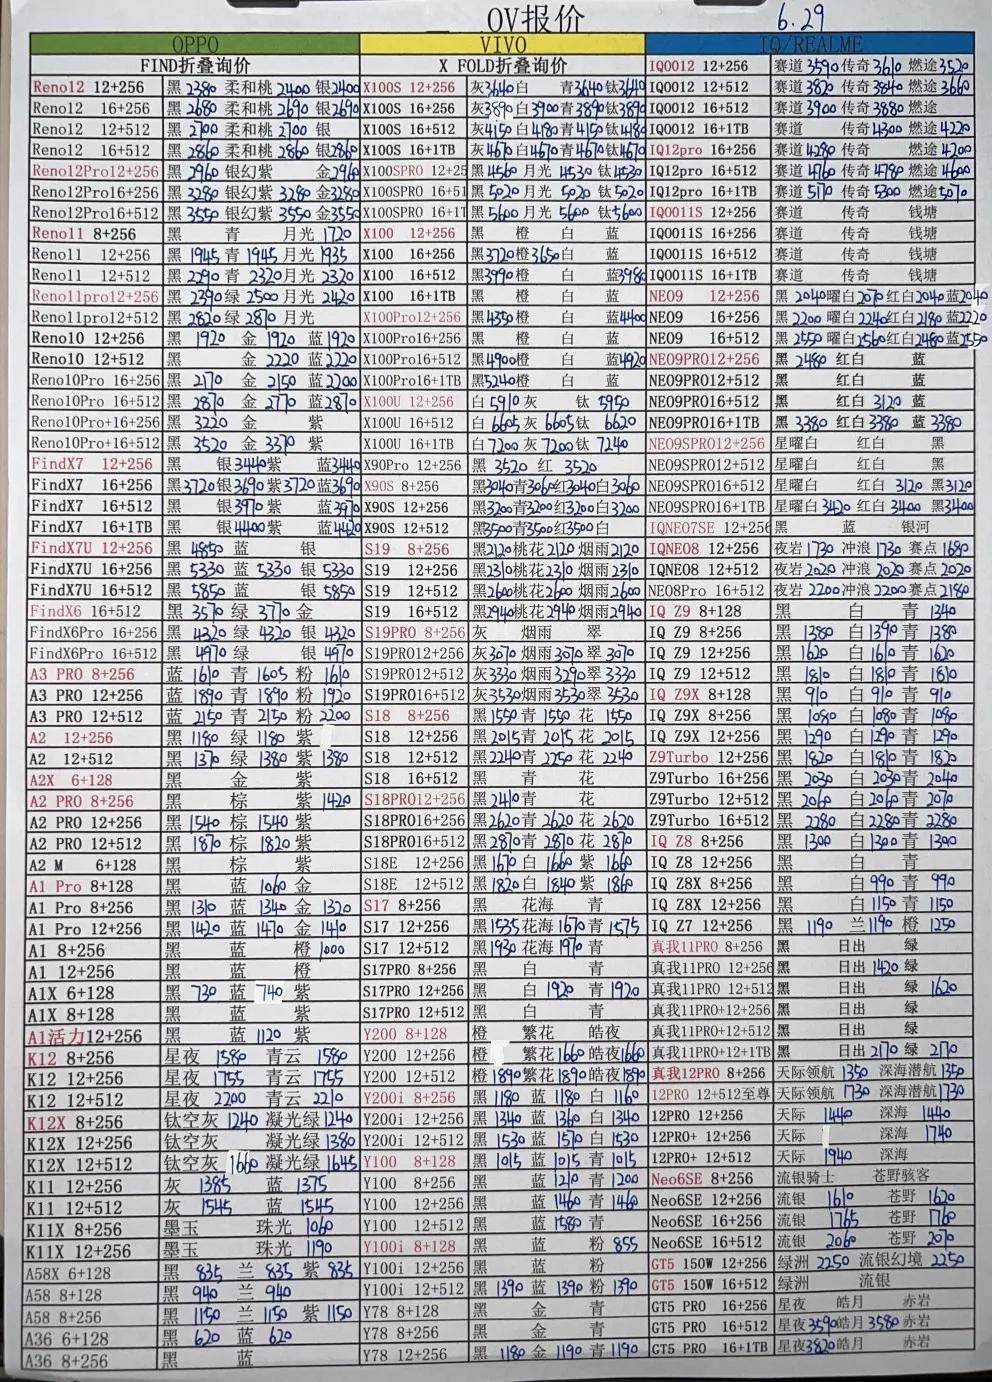 OV报价 6.29
OPPO VIVO IQ/REALME
FIND折叠询价 X FOLD折叠询价 IQOO12 12+256 赛道 3590 传奇 3610 燃途 3520
Reno12 12+256 黑 2380 柔和桃 2400 银 2400 X100S 12+256 灰 3640 白 青 3640 钛 3640 IQOO12 12+512 赛道 3820 传奇 3840 燃途 3660
Reno12 16+256 黑 2680 柔和桃 2690 银 2690 X100S 16+256 灰 3890 白 3900 青 3890 钛 3890 IQOO12 16+512 赛道 3900 传奇 3880 燃途
Reno12 12+512 黑 2700 柔和桃 2700 银 X100S 16+512 灰 4150 白 4180 青 4150 钛 4180 IQOO12 16+1TB 赛道 传奇 4300 燃途 4220
Reno12 16+512 黑 2860 柔和桃 2860 银 2860 X100S 16+1TB 灰 4670 白 4670 青 4670 钛 4670 IQ12pro 16+256 赛道 4280 传奇 燃途 4200
Reno12Pro12+256 黑 2960 银幻紫 金 2960 X100SPRO 12+25 黑 4560 月光 4530 钛 4530 IQ12pro 16+512 赛道 4760 传奇 4780 燃途 4600
Reno12Pro16+256 黑 3280 银幻紫 3280 金 3280 X100SPRO 16+51 黑 5020 月光 5020 钛 5020 IQ12pro 16+1TB 赛道 5170 传奇 5300 燃途 5070
Reno12Pro16+512 黑 3550 银幻紫 3550 金 3550 X100SPRO 16+1T 黑 5600 月光 5600 钛 5600 IQOO11S 12+256 赛道 传奇 钱塘
Reno11 8+256 黑 青 月光 1720 X100 12+256 黑 橙 白 蓝 IQOO11S 16+256 赛道 传奇 钱塘
Reno11 12+256 黑 1945 青 1945 月光 1935 X100 16+256 黑 3720 橙 3650 白 蓝 IQOO11S 16+512 赛道 传奇 钱塘
Reno11 12+512 黑 2290 青 2320 月光 2320 X100 16+512 黑 3990 橙 白 蓝 3980 IQOO11S 16+1TB 赛道 传奇 钱塘
Reno11pro12+256 黑 2390 绿 2500 月光 2420 X100 16+1TB 黑 橙 白 蓝 NEO9 12+256 黑 2040 曜白 2070 红白 2040 蓝 2040
Reno11pro12+512 黑 2820 绿 2870 月光 X100Pro12+256 黑 4350 橙 白 蓝 4400 NEO9 16+256 黑 2200 曜白 2240 红白 2180 蓝 2220
Reno10 12+256 黑 1920 金 1920 蓝 1920 X100Pro16+256 黑 橙 白 蓝 NEO9 16+512 黑 2550 曜白 2560 红白 2480 蓝 2550
Reno10 12+512 黑 金 2220 蓝 2220 X100Pro16+512 黑 4900 橙 白 蓝 4920 NEO9PRO12+256 黑 2480 红白 蓝
Reno10Pro 16+256 黑 2170 金 2150 蓝 2200 X100Pro16+1TB 黑 5240 橙 白 蓝 NEO9PRO12+512 黑 红白 蓝
Reno10Pro 16+512 黑 2870 金 2770 蓝 2870 X100U 12+256 白 5910 灰 钛 5950 NEO9PRO16+512 黑 红白 3120 蓝
Reno10Pro+16+256 黑 3220 金 紫 X100U 16+512 白 6605 灰 6605 钛 6620 NEO9PRO16+1TB 黑 3380 红白 3380 蓝 3380
Reno10Pro+16+512 黑 3520 金 3370 紫 X100U 16+1TB 白 7200 灰 7200 钛 7240 NEO9SPRO12+256 星曜白 红白 黑
FindX7 12+256 黑 银 3440 紫 蓝 3440 X90Pro 12+256 黑 3520 红 3520 NEO9SPRO12+512 星曜白 红白 黑
FindX7 16+256 黑 3720 银 3690 紫 3720 蓝 3690 X90S 8+256 黑 3040 青 3060 红 3040 白 3060 NEO9SPRO16+512 星曜白 红白 3120 黑 3120
FindX7 16+512 黑 银 3970 紫 蓝 3970 X90S 12+256 黑 3200 青 3200 红 3200 白 3200 NEO9SPRO16+1TB 星曜白 3420 红白 3400 黑 3400
FindX7 16+1TB 黑 银 4400 紫 蓝 4420 X90S 12+512 黑 3500 青 3500 红 3500 白 IQNEO7SE 12+256 黑 蓝 银河
FindX7U 12+256 黑 4850 蓝 银 S19 8+256 黑 2120 桃花 2120 烟雨 2120 IQNEO8 12+256 夜岩 1730 冲浪 1730 赛点 1680
FindX7U 16+256 黑 5330 蓝 5330 银 5330 S19 12+256 黑 2310 桃花 2310 烟雨 2310 IQNEO8 12+512 夜岩 2020 冲浪 2020 赛点 2020
FindX7U 16+512 黑 5850 蓝 银 5850 S19 12+512 黑 2600 桃花 2600 烟雨 2600 NEO8Pro 16+512 夜岩 2200 冲浪 2200 赛点 2180
FindX6 16+512 黑 3570 绿 3770 金 S19 16+512 黑 2940 桃花 2940 烟雨 2940 IQ Z9 8+128 黑 白 青 1340
FindX6Pro 16+256 黑 4320 绿 4320 银 4320 S19PRO 8+256 灰 烟雨 翠 IQ Z9 8+256 黑 1380 白 1390 青 1380
FindX6Pro 16+512 黑 4970 绿 银 4970 S19PRO12+256 灰 3070 烟雨 3070 翠 3070 IQ Z9 12+256 黑 1620 白 1610 青 1620
A3 PRO 8+256 蓝 1610 青 1605 粉 1610 S19PRO12+512 灰 3330 烟雨 3290 翠 3330 IQ Z9 12+512 黑 1810 白 1810 青 1810
A3 PRO 12+256 蓝 1890 青 1890 粉 1920 S19PRO16+512 灰 3530 烟雨 3530 翠 3530 IQ Z9X 8+128 黑 910 白 910 青 910
A3 PRO 12+512 蓝 2150 青 2150 粉 2200 S18 8+256 黑 1550 青 1550 花 1550 IQ Z9X 8+256 黑 1080 白 1080 青 1080
A2 12+256 黑 1180 绿 1180 紫 S18 12+256 黑 2015 青 2015 花 2015 IQ Z9X 12+256 黑 1290 白 1290 青 1290
A2 12+512 黑 1370 绿 1380 紫 1380 S18 12+512 黑 2240 青 2250 花 2240 Z9Turbo 12+256 黑 1820 白 1810 青 1820
A2X 6+128 黑 金 紫 S18 16+512 黑 青 花 Z9Turbo 16+256 黑 2030 白 2030 青 2040
A2 PRO 8+256 黑 棕 紫 1420 S18PRO12+256 黑 2410 青 花 Z9Turbo 12+512 黑 2060 白 2060 青 2070
A2 PRO 12+256 黑 1540 棕 1540 紫 S18PRO16+256 黑 2620 青 2620 花 2620 Z9Turbo 16+512 黑 2280 白 2280 青 2280
A2 PRO 12+512 黑 1870 棕 1820 紫 S18PRO16+512 黑 2870 青 2870 花 2870 IQ Z8 8+256 黑 1300 白 1300 青 1300
A2 M 6+128 黑 棕 紫 S18E 12+256 黑 1670 白 1660 紫 1660 IQ Z8 12+256 黑 白 青
A1 Pro 8+128 黑 蓝 1060 金 S18E 12+512 黑 1820 白 1840 紫 1860 IQ Z8X 8+256 白 990 青 990
A1 Pro 8+256 黑 1310 蓝 1340 金 1320 S17 8+256 黑 花海 青 IQ Z8X 12+256 白 1150 青 1150
A1 Pro 12+256 黑 1420 蓝 1470 金 1410 S17 12+256 黑 1535 花海 1670 青 1575 IQ Z7 12+256 黑 1190 兰 1190 橙 1250
A1 8+256 黑 蓝 橙 1000 S17 12+512 黑 1930 花海 1970 青 真我11PRO 8+256 黑 日出 绿
A1 12+256 黑 蓝 橙 S17PRO 8+256 黑 白 青 真我11PRO 12+256 黑 日出 1420 绿
A1X 6+128 黑 730 蓝 740 紫 S17PRO 12+256 黑 白 1920 青 1920 真我11PRO 12+512 黑 日出 绿 1620
A1X 8+128 黑 蓝 紫 S17PRO 12+512 黑 白 青 真我11PRO+12+256 黑 日出 绿
A1活力12+256 黑 蓝 1120 紫 Y200 8+128 橙 繁花 皓夜 真我11PRO+12+512 黑 日出 绿
K12 8+256 星夜 1580 青云 1580 Y200 12+256 橙 繁花 1660 皓夜 1660 真我11PRO+12+1TB 黑 日出 2170 绿 2170
K12 12+256 星夜 1755 青云 1755 Y200 12+512 橙 1890 繁花 1890 皓夜 1890 真我12PRO 8+256 天际领航 1350 深海潜航 1350
K12 12+512 星夜 2200 青云 2210 Y200i 8+256 黑 1180 蓝 1180 白 1160 12PRO 12+512至尊 天际领航 1730 深海潜航 1730
K12X 8+256 钛空灰 1240 凝光绿 1240 Y200i 12+256 黑 1340 蓝 1360 白 1340 12PRO 12+256 天际 1440 深海 1440
K12X 12+256 钛空灰 凝光绿 1380 Y200i 12+512 黑 1530 蓝 1570 白 1530 12PRO+ 12+256 天际 深海 1740
K12X 12+512 钛空灰 1660 凝光绿 1645 Y100 8+128 黑 1015 蓝 1015 青 1015 12PRO+ 12+512 天际 1940 深海
K11 12+256 灰 1385 蓝 1375 Y100 8+256 黑 蓝 1210 青 1200 Neo6SE 8+256 流银骑士 苍野骇客
K11 12+512 灰 1545 蓝 1545 Y100 12+256 黑 蓝 1460 青 1460 Neo6SE 12+256 流银 1610 苍野 1620
K11X 8+256 墨玉 珠光 1060 Y100 12+512 黑 蓝 1580 青 Neo6SE 16+256 流银 1765 苍野 1760
K11X 12+256 墨玉 珠光 1190 Y100i 8+128 黑 蓝 粉 855 Neo6SE 16+512 流银 2060 苍野 2070
A58X 6+128 黑 835 兰 835 紫 835 Y100i 12+256 黑 蓝 粉 GT5 150W 12+256 绿洲 2250 流银幻境 2250
A58 8+128 黑 940 兰 940 Y100i 12+512 黑 1390 蓝 1390 粉 1390 GT5 150W 16+512 绿洲 流银
A58 8+256 黑 1150 兰 1150 紫 1150 Y78 8+128 黑 金 青 GT5 PRO 16+256 星夜 皓月 赤岩
A36 6+128 黑 620 蓝 620 Y78 8+256 黑 金 青 GT5 PRO 16+512 星夜 3590 皓月 3580 赤岩
A36 8+256 黑 蓝 Y78 12+256 黑 1180 金 1190 青 1190 GT5 PRO 16+1TB 星夜 3820 皓月 赤岩